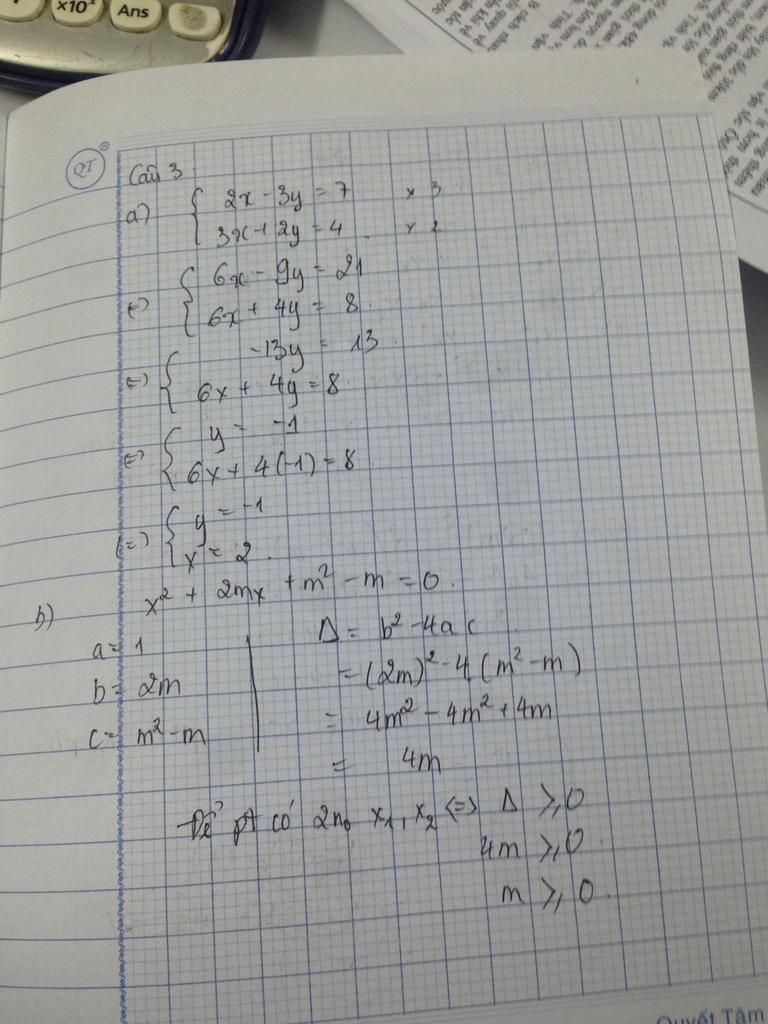 ×10ˣ
Ans
QT
Câu 3
a) { 2x - 3y = 7 × 3
3x + 2y = 4 × 2
(=) { 6x - 9y = 21
6x + 4y = 8
(=) { -13y = 13
6x + 4y = 8
(=) { y = -1
6x + 4(-1) = 8
(=) { y = -1
x = 2.
b) x² + 2mx + m² - m = 0.
a = 1
b = 2m
c = m² - m
Δ = b² - 4ac
= (2m)² - 4(m² - m)
= 4m² - 4m² + 4m
= 4m
Để pt có 2no x₁, x₂ <=> Δ ≥ 0
4m ≥ 0
m ≥ 0.
Quyết Tâm